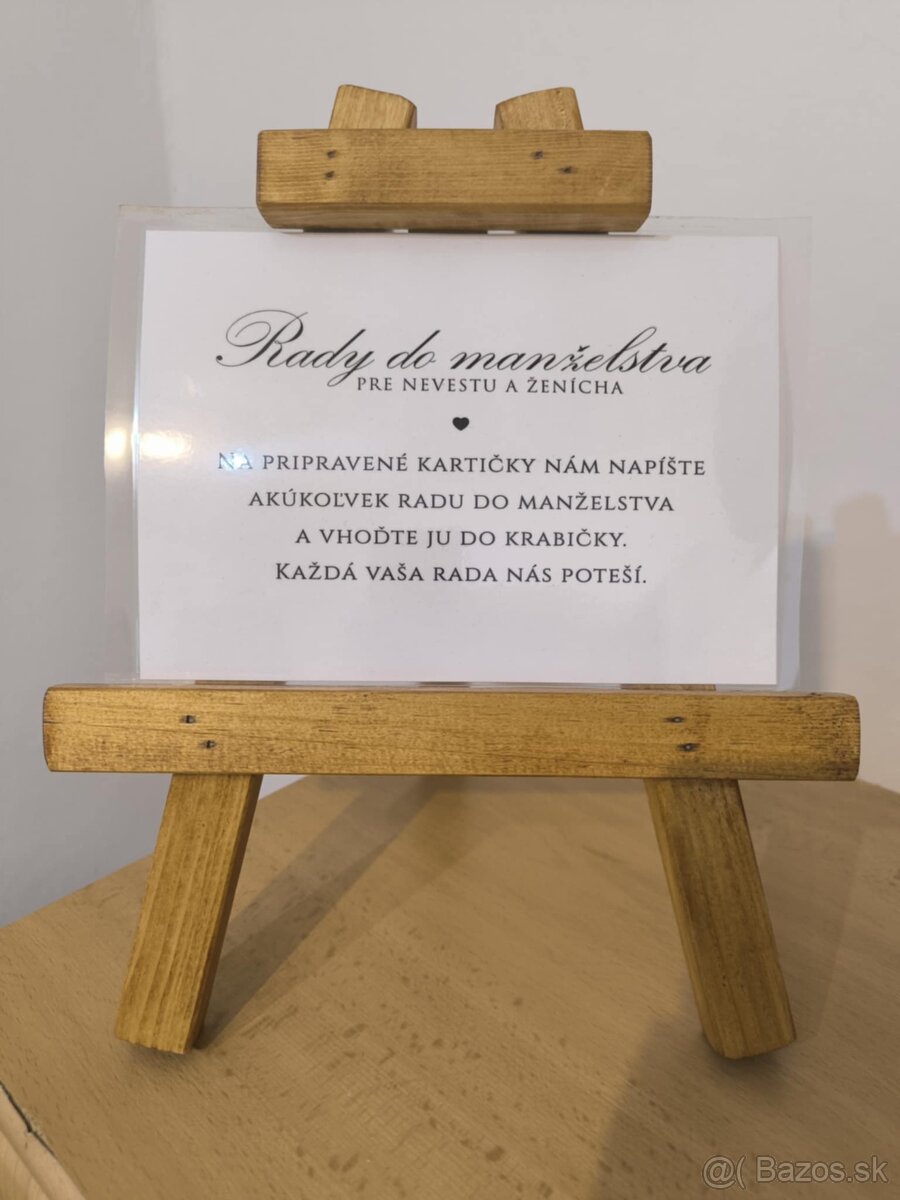 Rady do manželstva
PRE NEVESTU A ŽENÍCHA
NA PRIPRAVENÉ KARTIČKY NÁM NAPÍŠTE
AKÚKOĽVEK RADU DO MANŽELSTVA
A VHOĎTE JU DO KRABIČKY.
KAŽDÁ VAŠA RADA NÁS POTEŠÍ.
@( Bazos.sk